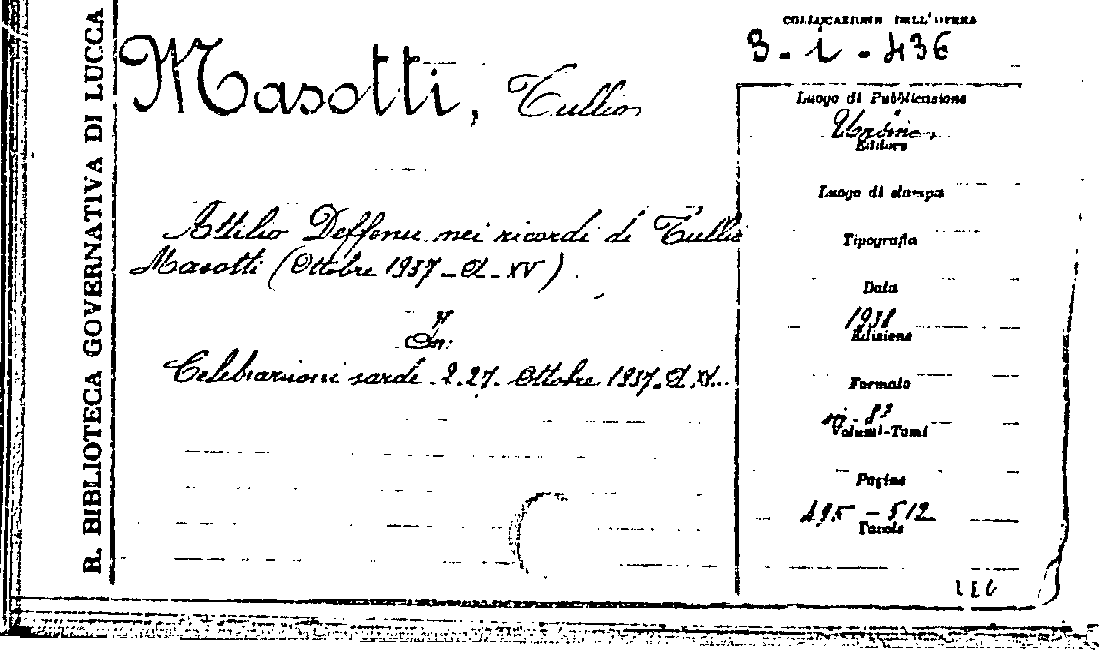 R. BIBLIOTECA GOVERNATIVA DI LUCCA
COLLOCAZIONE DELL'OPERA
3-i-436
Masotti, Tullio
Attilio Deffenu nei ricordi di Tullio
Masotti (Ottobre 1937-A-XV).
In:
Celebrazioni sarde 2.27. Ottobre 1937. A. XV.
Luogo di Pubblicazione
Urbino,
Editore
Luogo di stampa
Tipografia
Data
1938
Edizione
Formato
in-8º
Volumi-Tomi
Pagine
495-512
Tavole
LEG